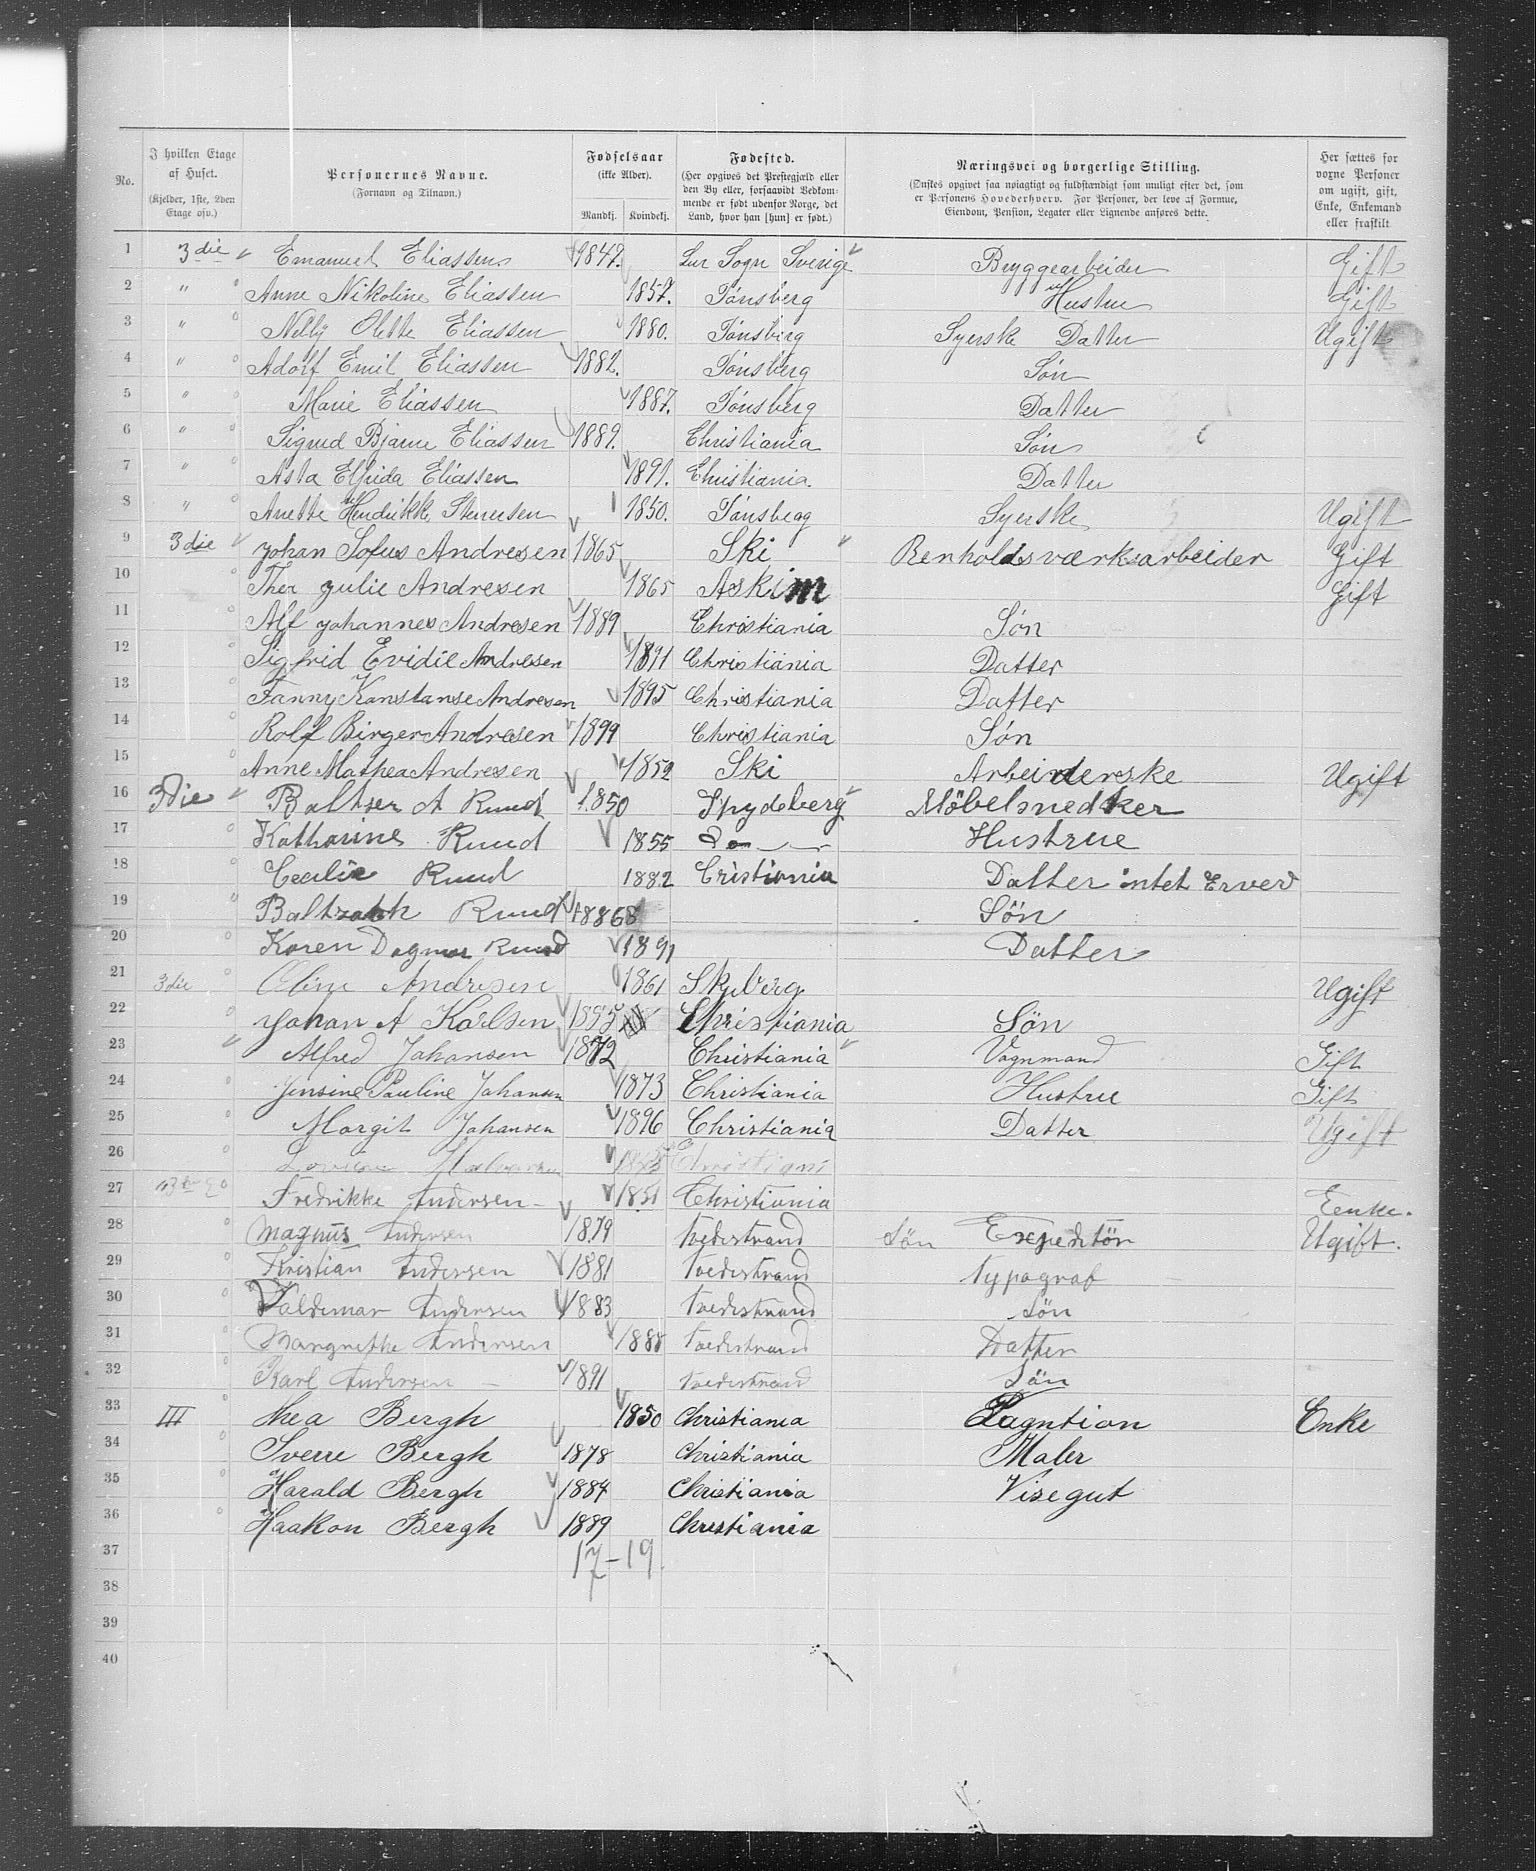 No. I hvilken Etage af Huset. (Kjelder, 1ste, 2den Etage osv.) Personernes Navne. (Fornavn og Tilnavn.) Fødselsaar (ikke Alder). Mandkj. Kvindekj. Fødested. (Her opgives det Prestegjæld eller den By eller, forsaavidt Vedkommende er født udenfor Norge, det Land, hvor han [hun] er født.) Næringsvei og borgerlige Stilling. (Ønskes opgivet saa nøiagtigt og fuldstændigt som muligt efter det, som er Personens Hovederhverv. For Personer, der leve af Formue, Eiendom, Pension, Legater eller Lignende anføres dette. Her sættes for vorne Personer om ugift, gift, Enke, Enkemand eller fraskilt
1 3die Emanuel Eliassen 1847. Lur Sogn Sverige Bryggearbeider Gift
2 " Anne Nikoline Eliassen 1857. Tønsberg Hustru Gift
3 " Nelly Olette Eliassen 1880. Tønsberg Syerske Datter Ugift
4 " Adolf Emil Eliassen 1882. Tønsberg Søn
5 " Marie Eliassen 1887. Tønsberg Datter
6 " Sigurd Bjarne Eliassen 1889. Christiania Søn
7 " Asta Elfrida Eliassen 1891. Christiania. Datter
8 " Anette Hendrikke Stenersen 1850. Tønsberg Syerske Ugift
9 3die Johan Sofus Andresen 1865 Ski Renholdsværksarbeider Gift
10 Thea Julie Andresen 1865 Askim Gift
11 Alf Johannes Andresen 1889 Christiania Søn
12 Sigfrid Evidie Andresen 1891 Christiania Datter
13 Fanny Konstanse Andresen 1895 Christiania Datter
14 Rolf Birger Andresen 1899 Christiania Søn
15 Anne Mathea Andresen 1852 Ski Arbeiderske Ugift
16 3die Baltser A Ruud 1850 Spydeberg Möbelsnedker
17 Katharine Ruud 1855 Do Hustrue
18 Cecilie Ruud 1882 Cristiania Datter intet Erverv
19 Ruud Sön
20 Karen Dagmar Ruud 1891 Datter
21 3die Oline Andresen 1861 Skjeberg Ugift
22 Johan A Karlsen 1895 Christiania Sön
23 " Alfred Johansen 1872 Christiania Vognmand Gift
24 Jensine Pauline Johansen 1873 Christiania Hustru Gift
25 Margit Johansen 1896 Christiania Datter Ugift
26 Christiania
27 Fredrikke Andersen 1851 Christiania Eenke.
28 Magnus Andersen 1879 tvedestrand Sön Expeditör Ugift.
29 Kristian Andersen 1881 tvedestrand typograf
30 Valdemar Andersen 1883 tvedestrand Sön
31 Margrethe Andersen 1888 tvedestrand Datter
32 Karl Andersen 1891 tvedestrand Sön
33 III Thea Bergh 1850 Christiania Enke
34 Sverre Bergh 1878 Christiania Maler
35 Harald Bergh 1884 Christiania Visegut
36 Haakon Bergh 1889 Christiania
37 17-19
38
39
40